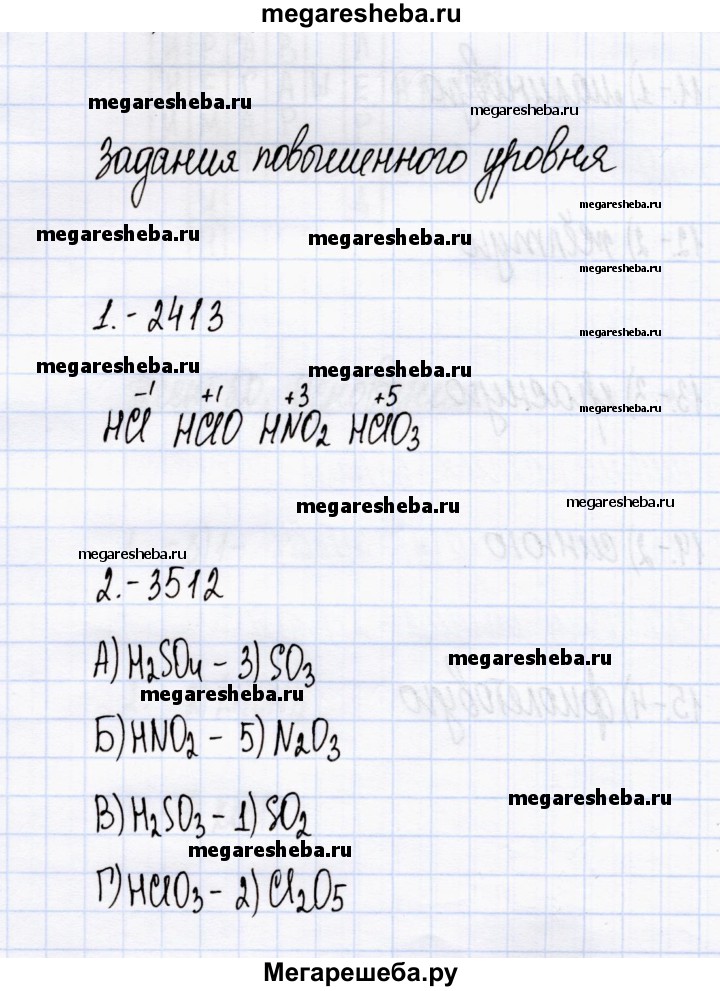 megaresheba.ru
megaresheba.ru
megaresheba.ru
Задания повышенного уровня
megaresheba.ru
megaresheba.ru
megaresheba.ru
megaresheba.ru
1.-2413
megaresheba.ru
megaresheba.ru
megaresheba.ru
-1 +1 +3 +5
HCl HClO HNO2 HClO3
megaresheba.ru
megaresheba.ru
megaresheba.ru
megaresheba.ru
2.-3512
А) H2SO4 - 3) SO3
megaresheba.ru
megaresheba.ru
Б) HNO2 - 5) N2O3
megaresheba.ru
В) H2SO3 - 1) SO2
megaresheba.ru
Г) HClO3 - 2) Cl2O5
Мегарешеба.ру